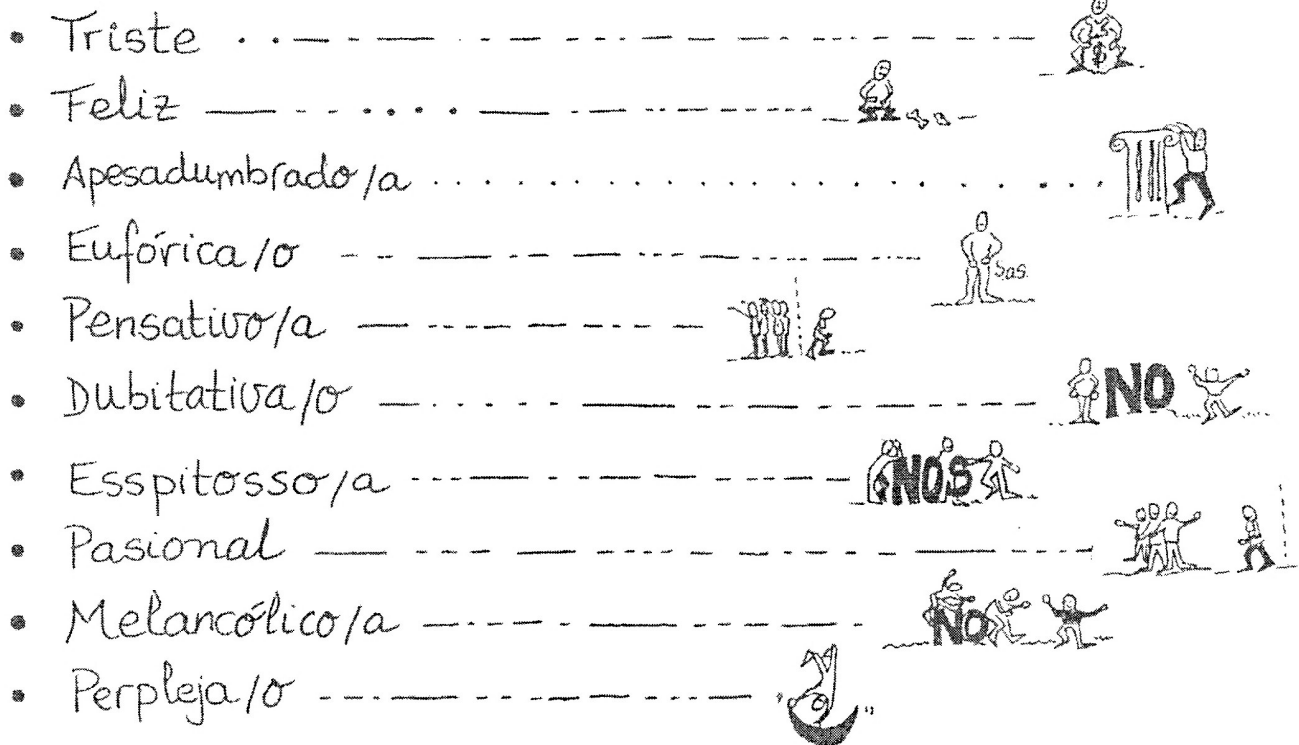 • Triste $
• Feliz
• Apesadumbrado/a
• Eufórica/o Sas.
• Pensativo/a
• Dubitativa/o NO
• Esspitosso/a NOS
• Pasional
• Melancólico/a NO
• Perpleja/o